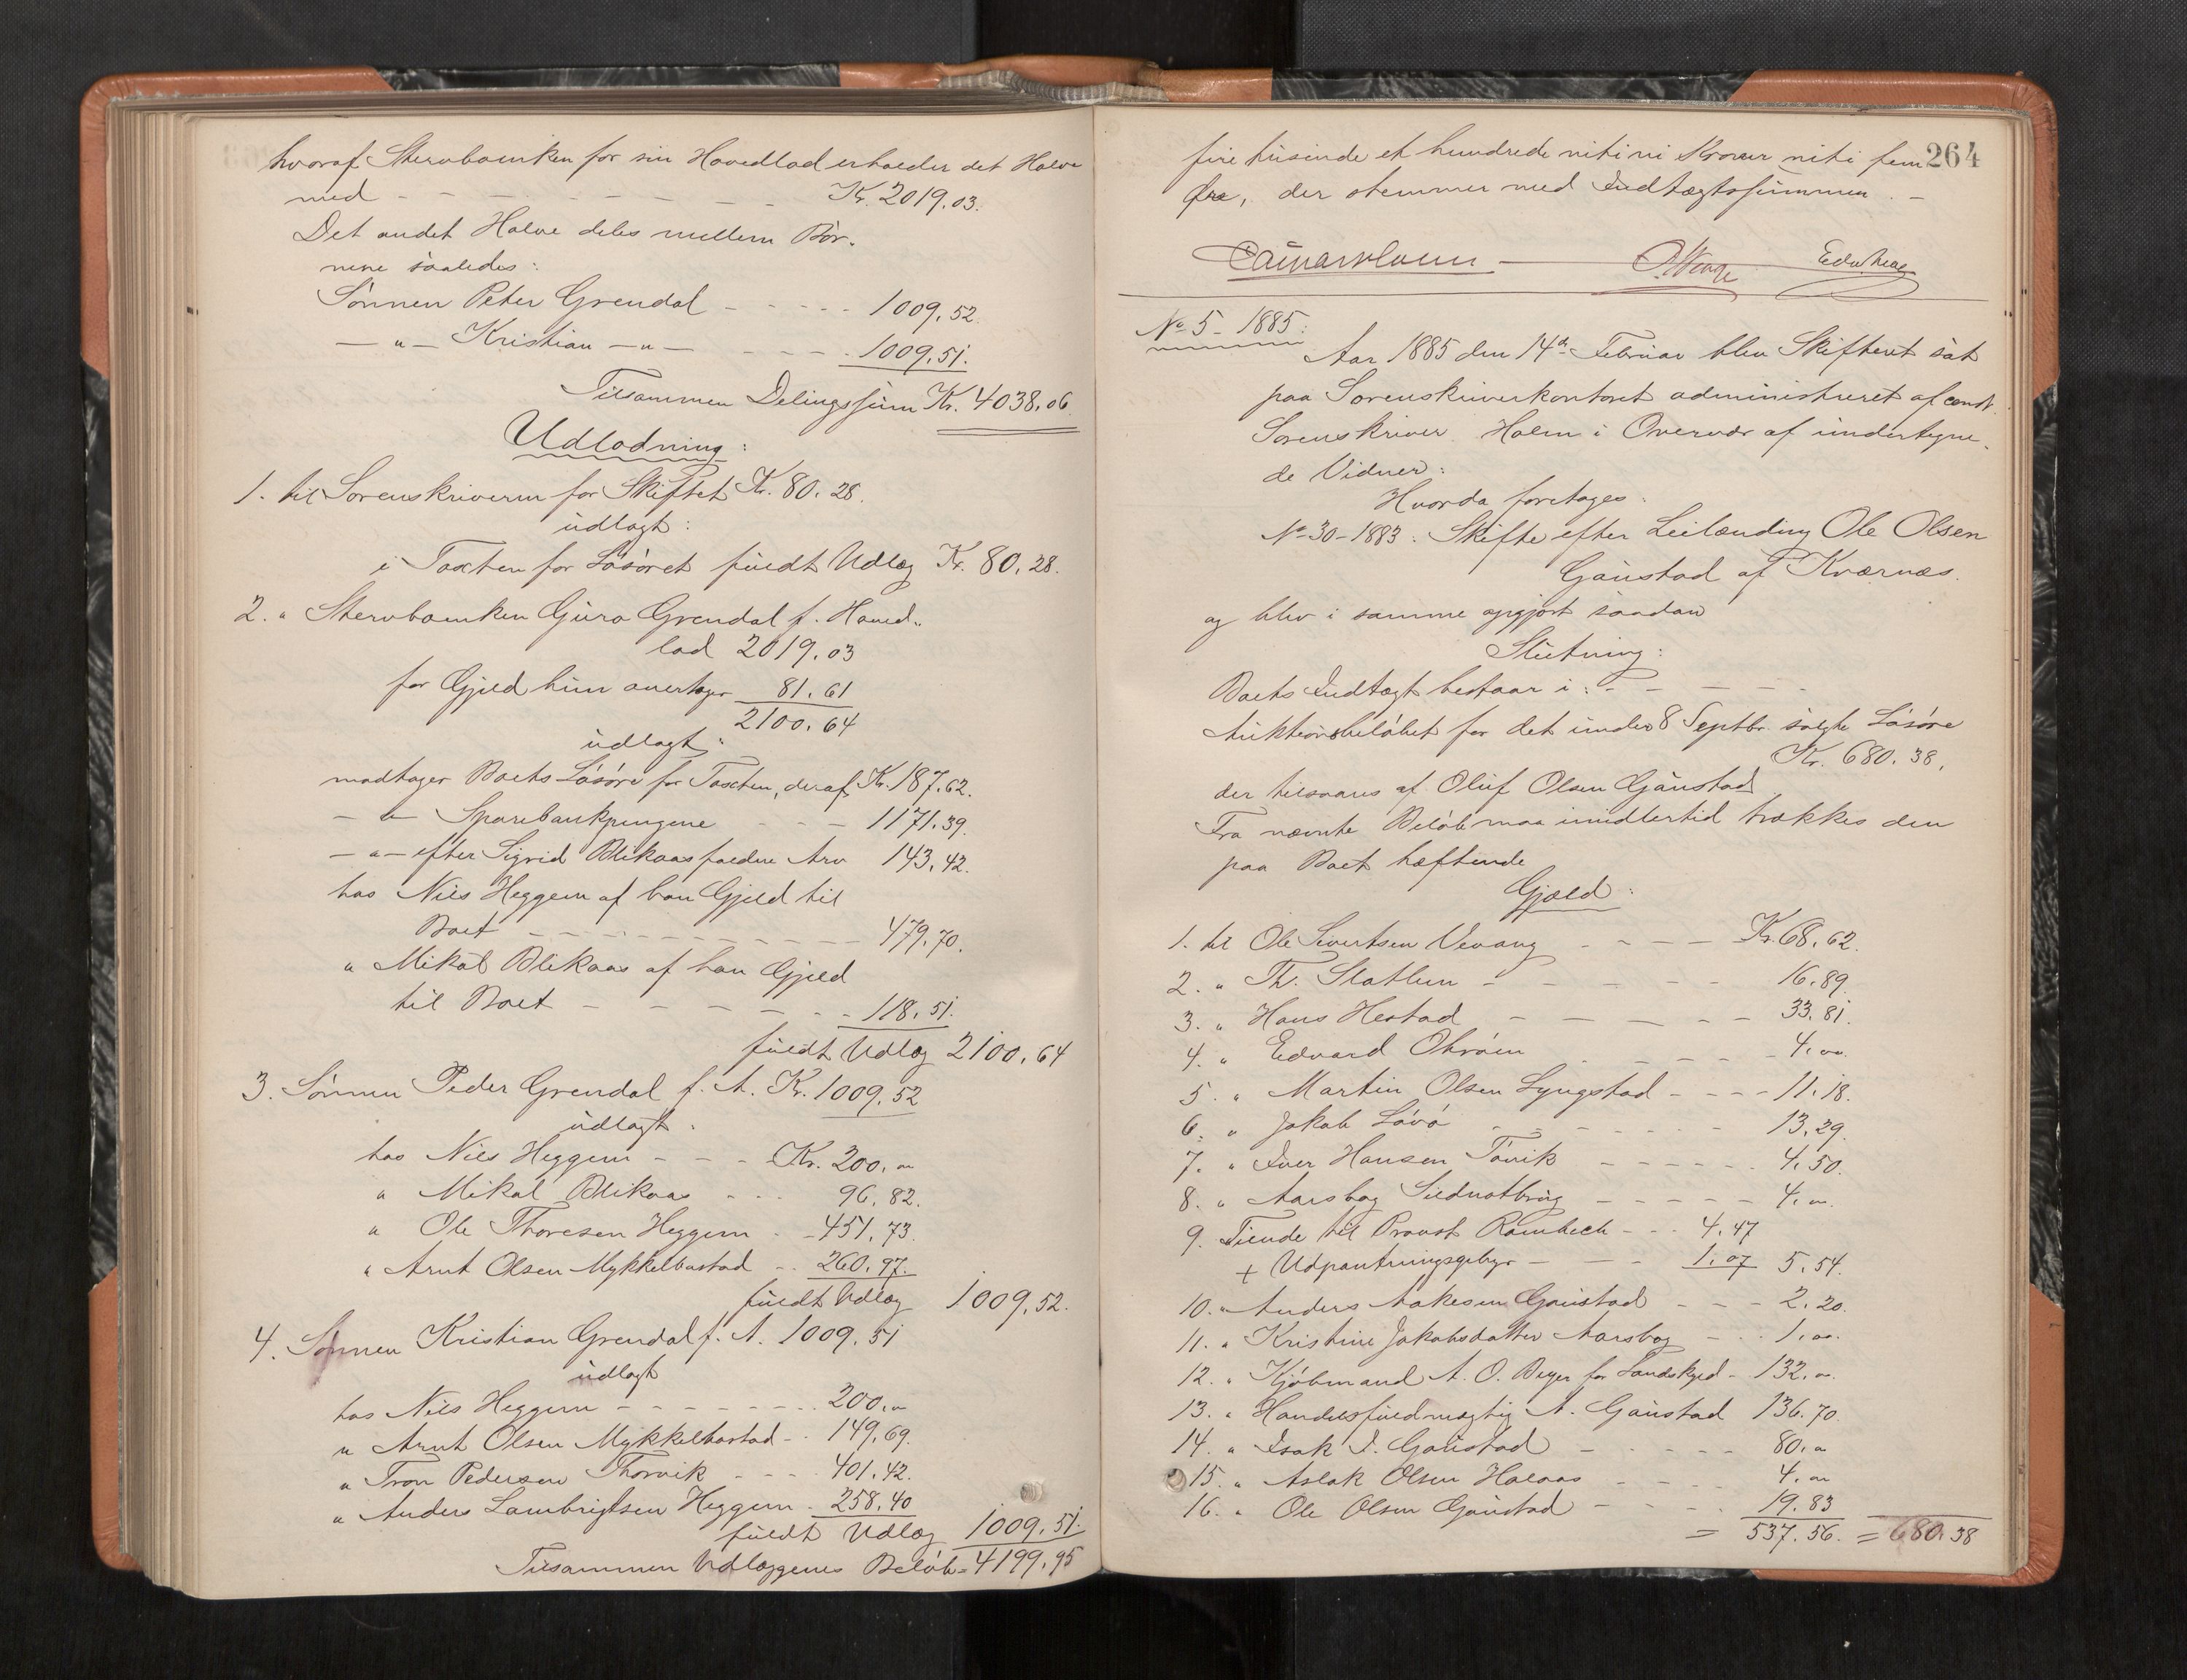 hvoraf Stervboenken for sin Hovedlod erholder det Halve
med - - - - - - - - Kr. 2019.03.
Det andet Halve deles mellem Bør-
nene saaledes:
Sønnen Peter Grendal - - - - - 1009.52.
— " — Kristian — " — - - - - 1009.51.
Tilsammen Delingssum Kr. 4038.06.
Udlodning:
1. til Sorenskriveren for Skiftet Kr. 80.28.
udlagt:
i Taxten for Løsøret fuldt Udlæg Kr. 80.28.
2. " Stervboenken Guro Grendal f. Hoved-
lod 2019.03
for Gjæld hun overtager 81.61
2100.64
udlagt:
modtager Boets Løsøre for Taxten, deraf Kr. 187.62.
— " — Sparebankpengene - - - 1171.39.
— " — efter Sigrid Blikaas faldne Arv 143.42.
hos Nils Heggem af han Gjæld til
Boet - - - - - - - - - - 479.70.
" Mikal Blikaas af han Gjæld
til Boet - - - - - - 118.51.
fuldt Udlæg 2100.64
3. Sønnen Peder Grendal f. A. Kr. 1009.52
udlagt:
hos Nils Heggem - - - Kr. 200. "
" Mikal Blikaas - - - 96.82.
" Ole Thoresen Heggem - - 451.73.
" Arnt Olsen Mykkelbostad - - 260.97.
fuldt Udlæg 1009.52.
4. Sønnen Kristian Grendal f. A. 1009.51
udlagt
hos Nils Heggem - - - - - - - 200. "
" Arnt Olsen Mykkelbostad - - 149.69.
" Tron Pedersen Thorvik - - - - 401.42.
" Anders Lambrigtsen Heggem - 258.40
fuldt Udlæg 1009.51.
Tilsammen Udlæggenes Beløb = 4199.95
264
fire tusinde et hundrede niti ni Kroner niti fem
Øre, der stemmer med Indtægtssummen. —
No 5 - 1885:
Aar 1885 den 14de Februar blev Skifteret sat
paa Sorenskriverkontoret administreret af const.
Sorenskriver Holm i Overvær af undertegne-
de Vidner:
Hvorda foretages:
No 30 - 1883. Skifte efter Leilænding Ole Olsen
Gaustad af Kværnæs.
og blev i samme opgjort saadan
Slutning:
Boets Indtægt bestaar i: - - - - -
Auktionsbeløbet for det under 8 Septbr. solgte Løsøre
Kr. 680.38.
der tilsvares af Oluf Olsen Gaustad
Fra nævnte Beløb maa imidlertid trækkes den
paa Boet hæftende
Gjæld:
1. til Ole Sivertsen Vevang - - - - Kr. 68.62.
2. " Th. Slatlem - - - - - - 16.89.
3. " Hans Hestad - - - - - - 33.81.
4. " Edvard - - - - - 4.00.
5. " Martin Olsen Lyngstad - - - - 11.18.
6. " Jakob Løvø - - - - - - - 13.29.
7. " Iver Hansen Tøvik - - - - - 4.50.
8. " Aarsbog Sildnotbrug - - - - - 4. "
9. Tiende til Provst Rambech - - - 4.47
+ Udpantningsgebyr - - - 1.07 5.54.
10. " Anders Aakesen Gaustad - - - 2.20.
11. " Kristine Jakobsdatter Aarsbog - - - 1.00.
12. " Kjøbmand A. O. Beyer for Landskyld - 132. "
13. " Handelsfuldmægtig A. Gaustad 136.70.
14. " Isak I. Gaustad - - - - - 80. "
15. " Aslak Olsen Haláas - - - 4. "
16. " Ole Olsen Gaustad - - - - 19.83
= 537.56. = 680.38